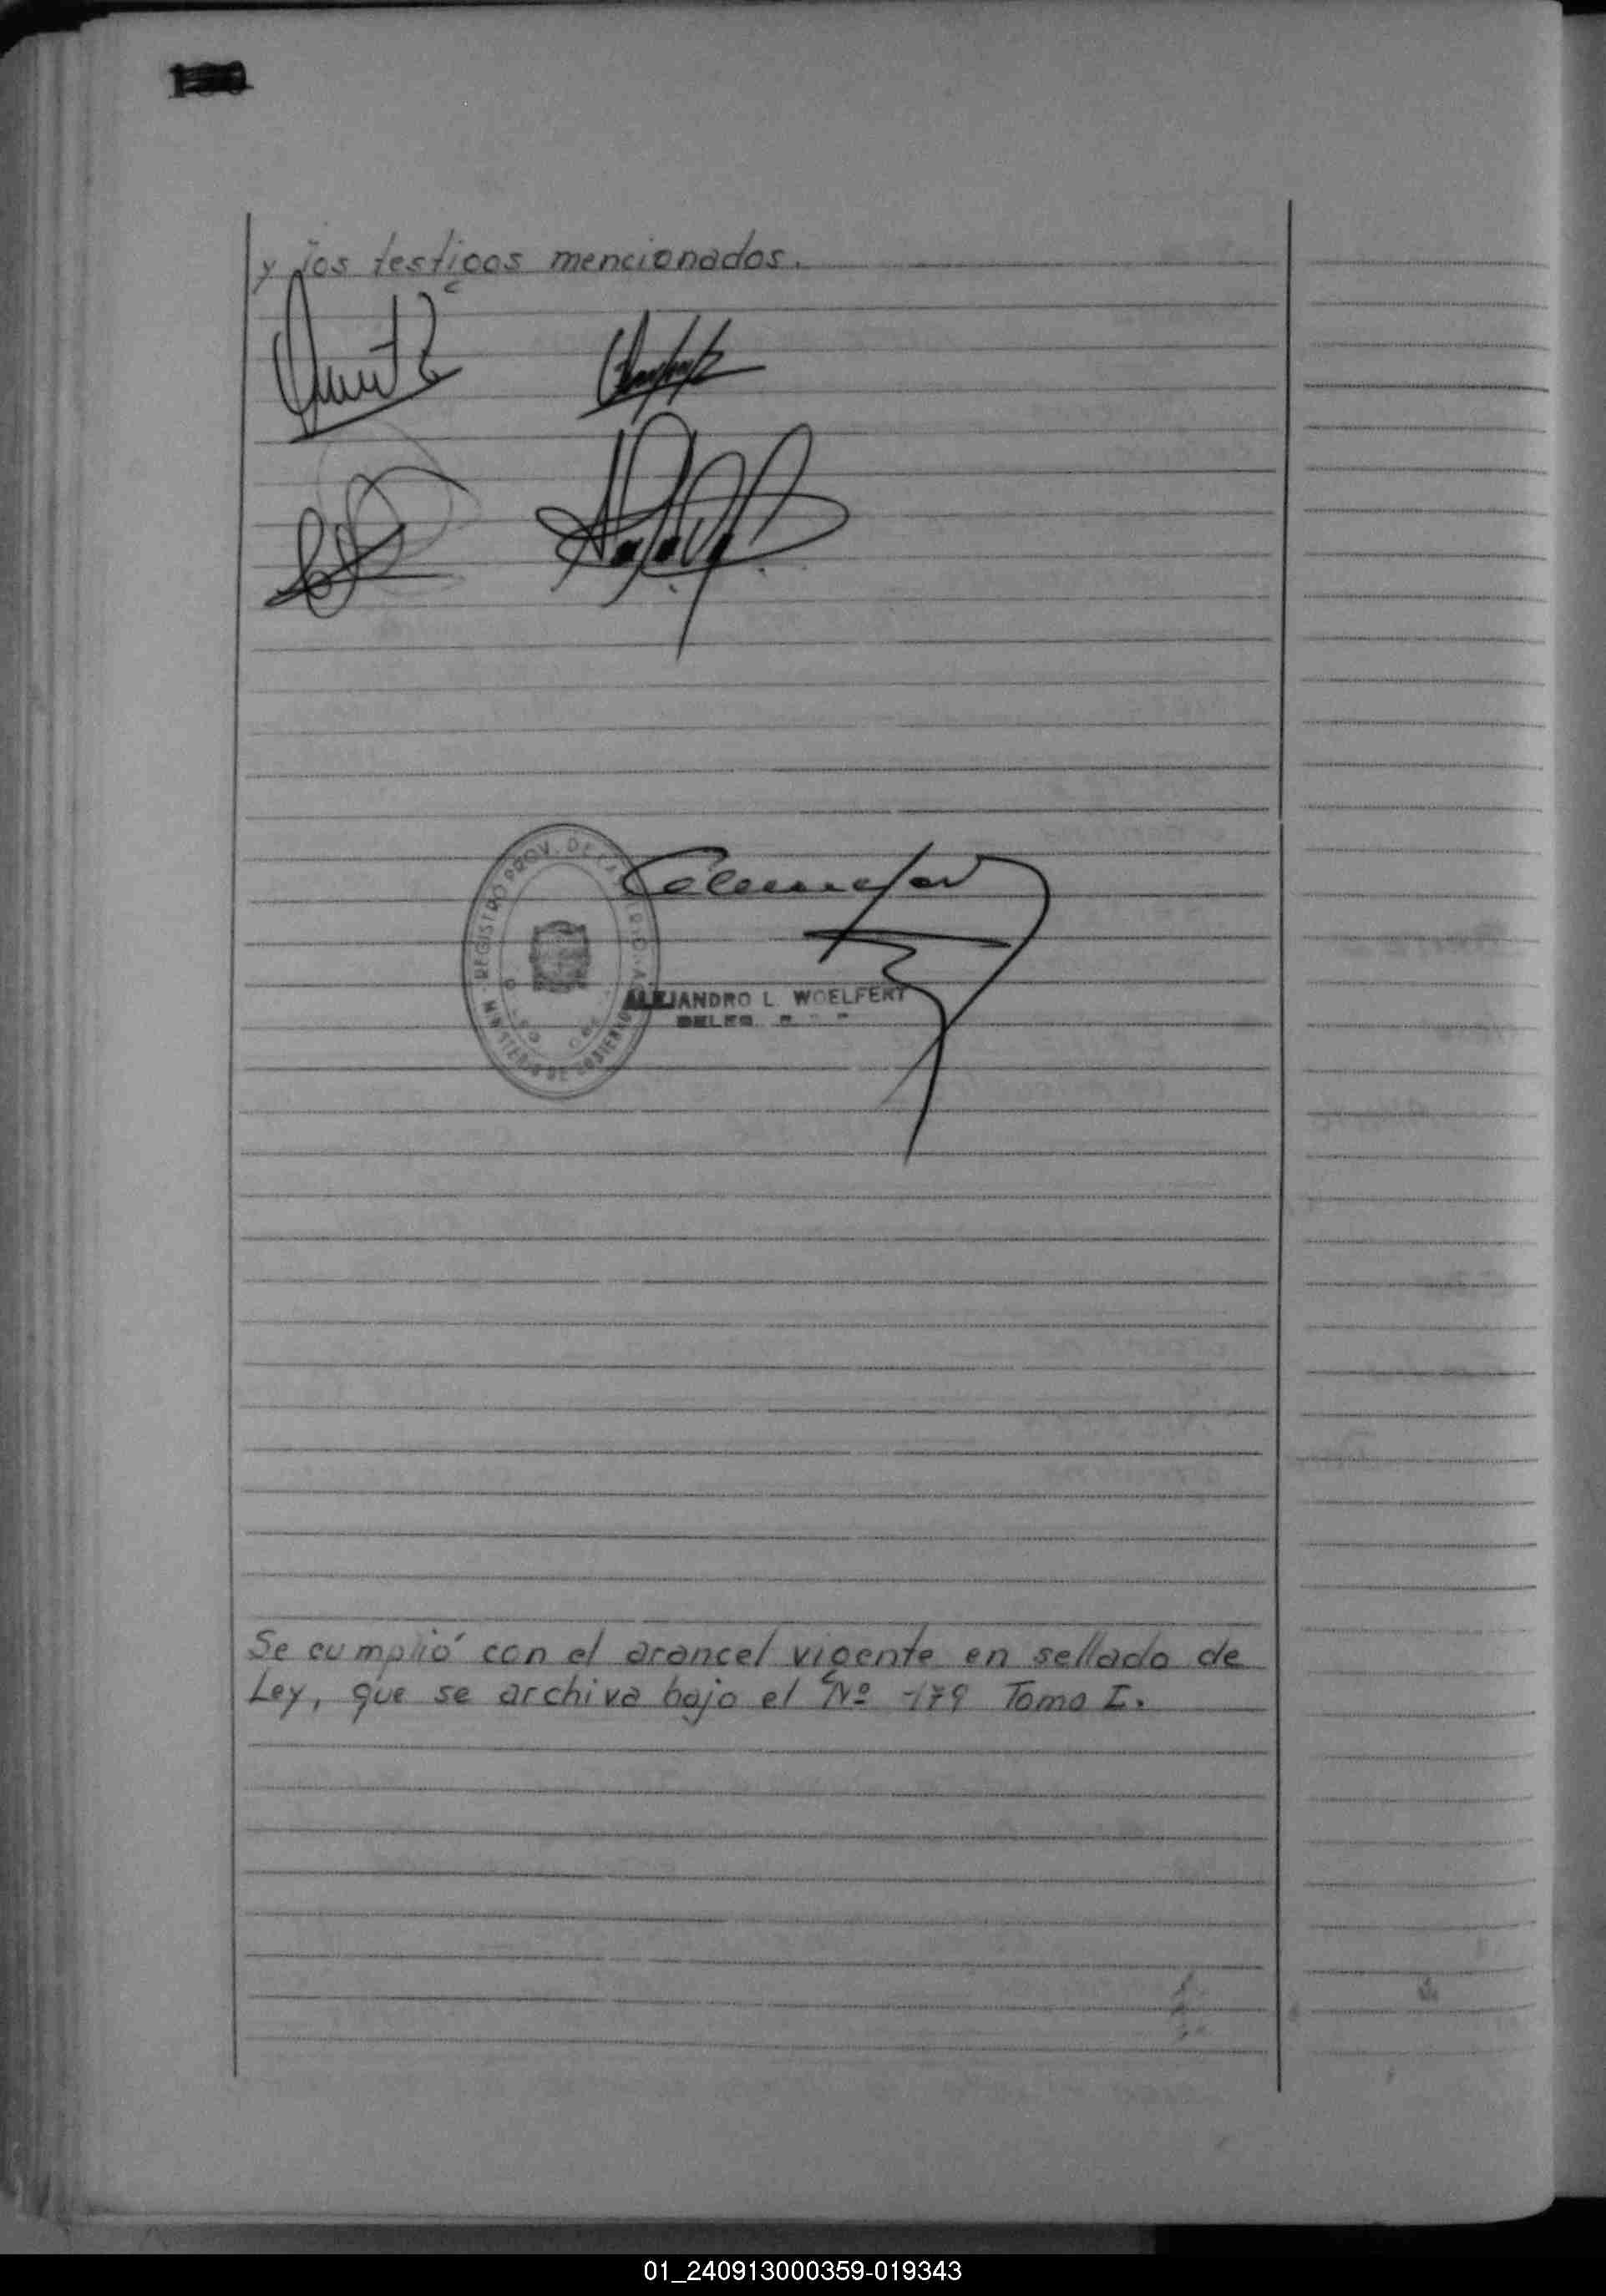 y los testigos mencionados.
REGISTRO PROV. DE LAS
MINISTERIO DE GOBIERNO
ALEJANDRO L. WOELFERT
Se cumplió con el arancel vigente en sellado de
Ley, que se archiva bajo el Nº 179 Tomo I.
01_240913000359-019343